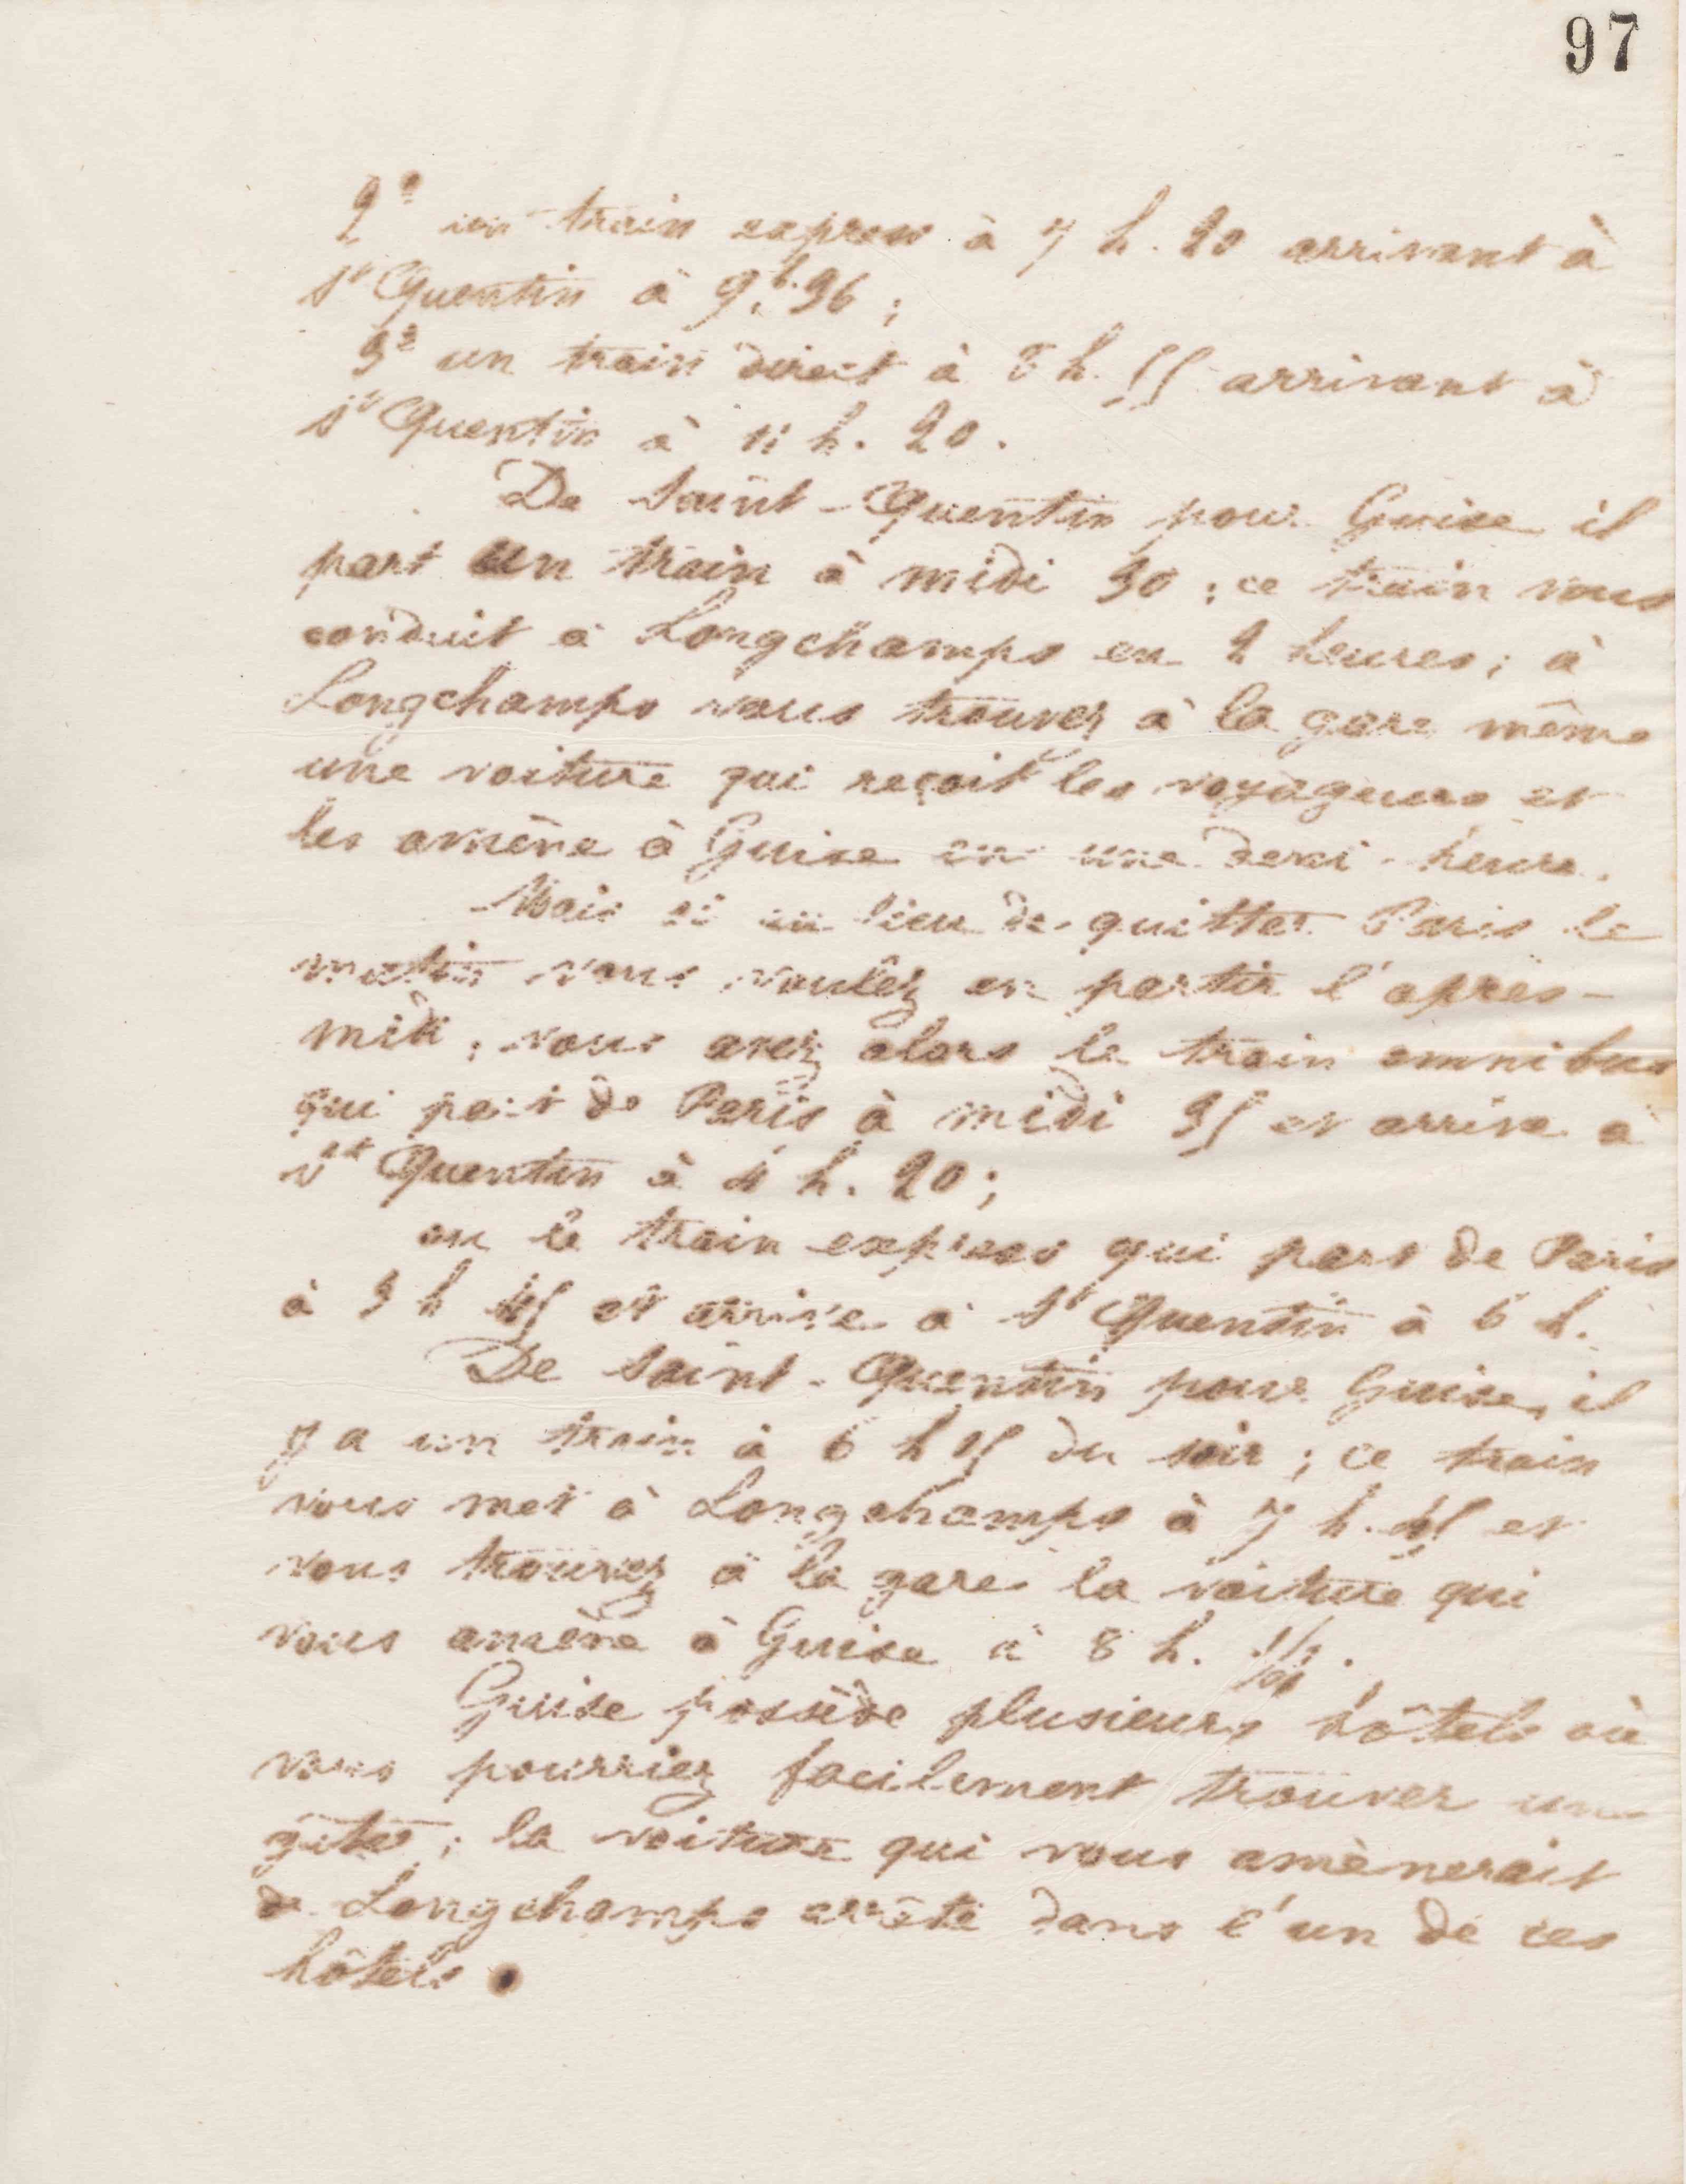 97
2º un train express à 7 h. 20 arrivant à
St Quentin à 9.h.36 ;
3º un train direct à 8 h. 55 arrivant à
St Quentin à 11 h. 20.
De Saint-Quentin pour Guise il
part un train à midi 30 ; ce train vous
conduit à Longchamps en 2 heures ; à
Longchamps vous trouvez à la gare même
une voiture qui reçoit les voyageurs et
les amène à Guise en une demi-heure.
Mais si au lieu de quitter Paris le
matin vous voulez en partir l'après-
midi, vous avez alors le train omnibus
qui part de Paris à midi 35 et arrive à
St Quentin à 4 h. 20 ;
ou le train express qui part de Paris
à 3 h 45 et arrive à St Quentin à 6 h.
De Saint-Quentin pour Guise, il
y a un train à 6 h 15 du soir ; ce train
vous met à Longchamps à 7 h. 45 et
vous trouvez à la gare la voiture qui
vous amène à Guise à 8 h. 1/2.
Guise possède plusieurs hôtels où
vous pourriez facilement trouver un
gîte ; la voiture qui vous amènerait
de Longchamps arrête dans l'un de ces
hôtels.